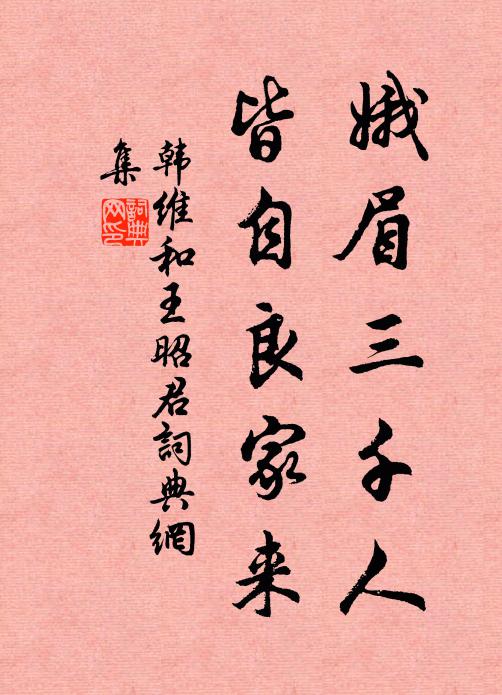 娥眉三千人
皆自良家来
韩维和王昭君詞典網
集
詞典
网印